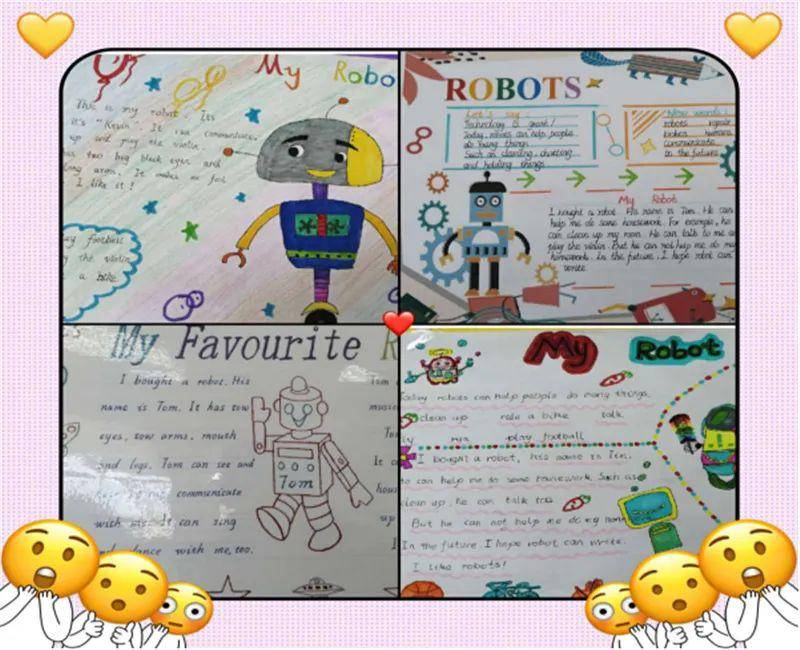 My Robo
This is my robot. Its
it's "Kevin". It can communicate,
up and play the violin.
has two big black eyes and
long arms. It makes me feel
I like it!
ay football
y the violin
a bike
ROBOTS
Let's say:
Technology is great!
Today, robots can help people
do many things.
Such as cleaning, cheating
and holding things
New words:
robots repair
broken humans
communicate
in the future
My Robot
I bought a robot. His name is Tom. He can
help me do some housework. For example, he
can clean up my room. He can talk to me and
play the violin. But he can not help me do my
homework. In the future, I hope robot can
write.
My Favourite R
I bought a robot. His
name is Tom. It has tow
eyes, tow arms, mouth
and legs. Tom can see and
communicate
with me. It can sing
dance with me, too.
Tom
Tom
musi
To
It c
hou
up
My Robot
Today robots can help people do many things.
clean up ride a bike talk
run play football
I bought a robot, his name is Tom.
can help me do some housework. Such as
clean up, he can talk too
But he can not help me do my hom
In the future. I hope robot can write.
I like robots!